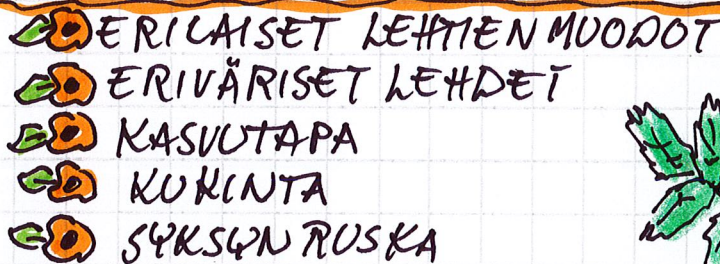 ERILAISET LEHTIEN MUODOT
ERIVÄRISET LEHDET
KASVUTAPA
KUKINTA
SYKSYN RUSKA